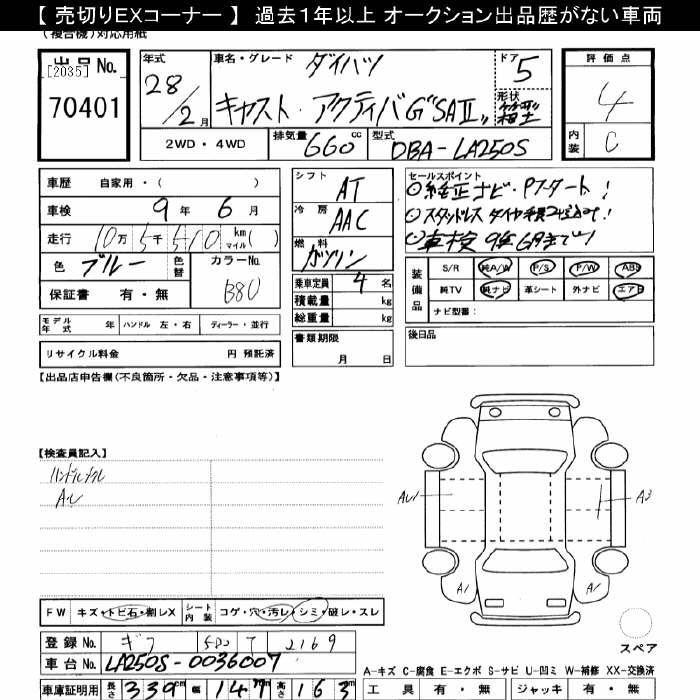 【 売切りEXコーナー 】 過去1年以上 オークション出品歴がない車両
(複合機)対応用紙
出品 No.
[2035]
70401
年式
28/2月
車名・グレード
ダイハツ
キャスト・アクティバG"SAⅡ"
ドア
5
形状
評価点
4
内装
C
2WD・4WD
排気量
660cc
型式
DBA-LA250S
車歴 自家用・( )
車検 9年 6月
走行 10万 5千 510 km マイル( )
色 ブルー
色替
カラーNo.
B80
保証書 有・無
シフト
AT
冷房
AAC
燃料
ガソリン
乗車定員 4名
積載量 kg
総重量 kg
書類期限
月 日
セールスポイント
純正ナビ・Pスタート!
スタッドレス タイヤ
車検 9年6月まで!
装備品
S/R 純A/W P/S P/W ABS
純TV 純ナビ 革シート 外ナビ エアB
ナビ型番:
後日品
モデル年式 年 ハンドル 左・右 ディーラー・並行
リサイクル料金 円 預託済
【出品店申告欄(不良箇所・欠品・注意事項等)】
【検査員記入】
AU1
A3
A1
A1
FW キズ・トビ石・割レX シート内装 コゲ・穴・汚レ・シミ・破レ・スレ
登録No. ギフ 580 T 2169
車台No. LA250S-0036007
車庫証明用 長さ 339cm 幅 147cm 高さ 163cm
スペア
A-キズ C-腐食 E-エクボ S-サビ U-凹ミ W-補修 XX-交換済
工具 有・無 ジャッキ 有・無